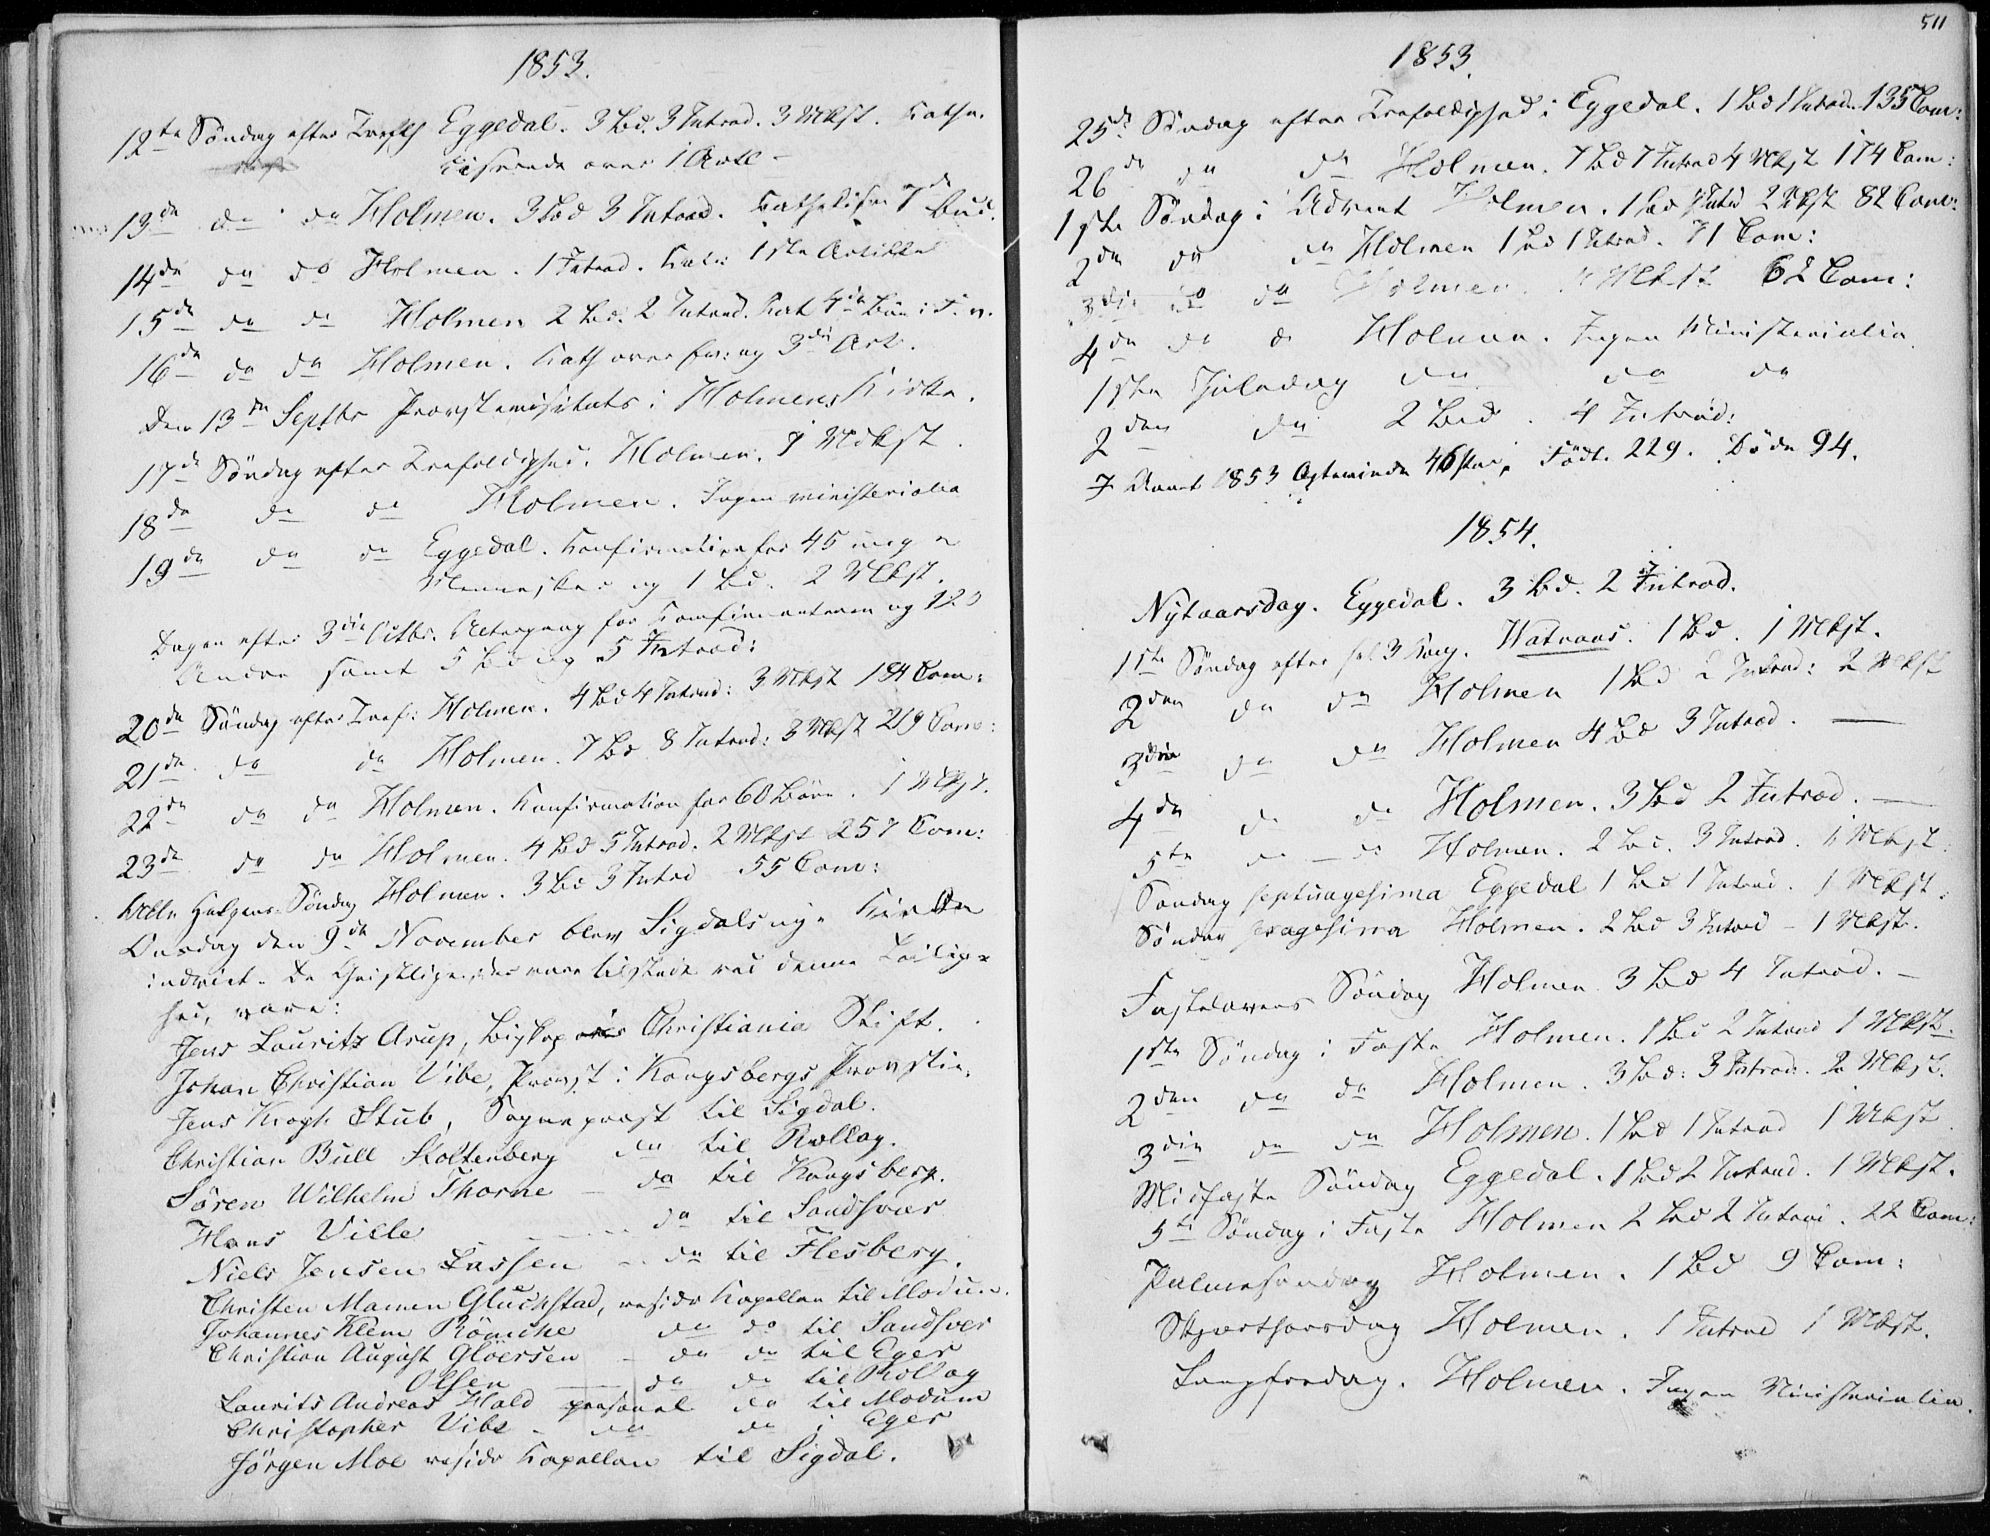 1853.
12te Søndag efter Trefs Eggedal. 3 Bd. 3 Introd. 3 Mkst. Kathe-
tiserede over 1 Artl -
13de do do Holmen. 3 Bd 3 Introd. Kathetiser 7de Bud.
14de do do Holmen. 1 Introd. Kat: 1ste Artikkel
15de do do Holmen 2 Bd. 2 Introd. Kat 4de Bøn i F. v.
16de do do Holmen. Kath over og 3die Art.
Den 13de Septbr Provstevisitats i Holmens Kirke.
17de Søndag efter Trefoldighed. Holmen. 1 Mkst.
18de do do Holmen. Ingen ministerialia
19de do do Eggedal. Konfirmation for 45 unge
Mennesker og 1 Bd. 2 Mkst.
Dagen efter 3die Octbr. Altergang for Konfirmanterne og 120
Andre samt 5 Bd og 5 Introd:
20de Søndag efter Tref: Holmen. 4 Bd 4 Introd: 3 Mkst 184 Com:
21de do do Holmen. 7 Bd 8 Introd: 3 Mkst 219 Com:
22de do do Holmen. Konfirmation for 60 Børn. 1 Mkst.
23de do do Holmen. 4 Bd 5 Introd. 2 Mkst 257 Com:
Alle Helgens Søndag Holmen. 3 Bd 3 Introd 55 Com:
Onsdag den 9de November blev Sigdals nye Kirke
indviet. De Geistlige, der vare tilstede ved denne Leilig-
hed, vare:
Jens Lauritz Arup, Biskop Christiania Stift.
Johan Christian Vibe, Provst i Kongsbergs Provstie.
Jens Krogh Stub, Sogneprest til Sigdal.
Christian Bull Stoltenberg do til Rollag.
Søren Wilhelm Thorne - do til Kongsberg.
Hans Ville - do til Sandsvær
Niels Jensen Lassen - do til Flesberg.
Christen Mamen Gluckstad, reside Kapellan til Modum.
Johannes Klem Rönicke do do til Sandsver
Christian August Gløersen - do do til Eger
Olsen - do do til Rollag
Laurits Andreas Hald personel do til Modum
Christopher Vibe - do do i Eger
Jörgen Moe reside Kapellan til Sigdal.
511
1853.
25de Søndag efter Trefoldighed i Eggedal. 1 Bd 1 Introd. 135 Com:
26de do do Holmen. 7 Bd 7 Introd 4 Mkst 174 Com:
1ste Søndag i Advent Holmen. 1 Bd Introd 2 Mkst 82 Com:
2den do do Holmen 1 Bd 1 Introd. 71 Com:
3die do do Holmen. Mkst 62 Com:
4de do do Holmen. Ingen Ministerialia.
1ste Juledag do do do
2den do 2 Bd. 4 Introd:
I Aaret 1853 Ægteviede 46 Par, Födte 229. Döde 94.
1854.
Nytaarsdag. Eggedal. 3 Bd. 2 Introd.
1ste Søndag efter hel 3 Kong. Watnaas. 1 Bd. 1 Mkst.
2den do do Holmen 1 Bd 2 Introd: 2 Mkst
3die do do Holmen 4 Bd 3 Introd. -
4de do do Holmen. 3 Bd 2 Introd. -
5te do - do Holmen. 2 Bd. 3 Introd. 1 Mkst.
Søndag septuagesima Eggedal 1 Bd 1 Introd. 1 Mkst.
Søndag sexagesima Holmen. 2 Bd 3 Introd - 1 Mkst.
Fastelavens Søndag Holmen 3 Bd 4 Introd. -
1ste Søndag i Faste Holmen. 1 Bd 2 Introd 1 Mkst.
2den do do Holmen. 3 Bd: 3 Introd. 2 Mkst.
3die do do Holmen. 1 Bd 1 Introd 1 Mkst.
Midfaste Søndag Eggedal. 1 Bd 2 Introd. 1 Mkst.
5te Søndag i Faste Holmen 2 Bd 2 Introd. 22 Com:
Palmesøndag Holmen. 1 Bd 9 Com:
Skjærthorsdag Holmen. 1 Introd 1 Mkst.
Langfredag. Holmen. Ingen Ministerialia.